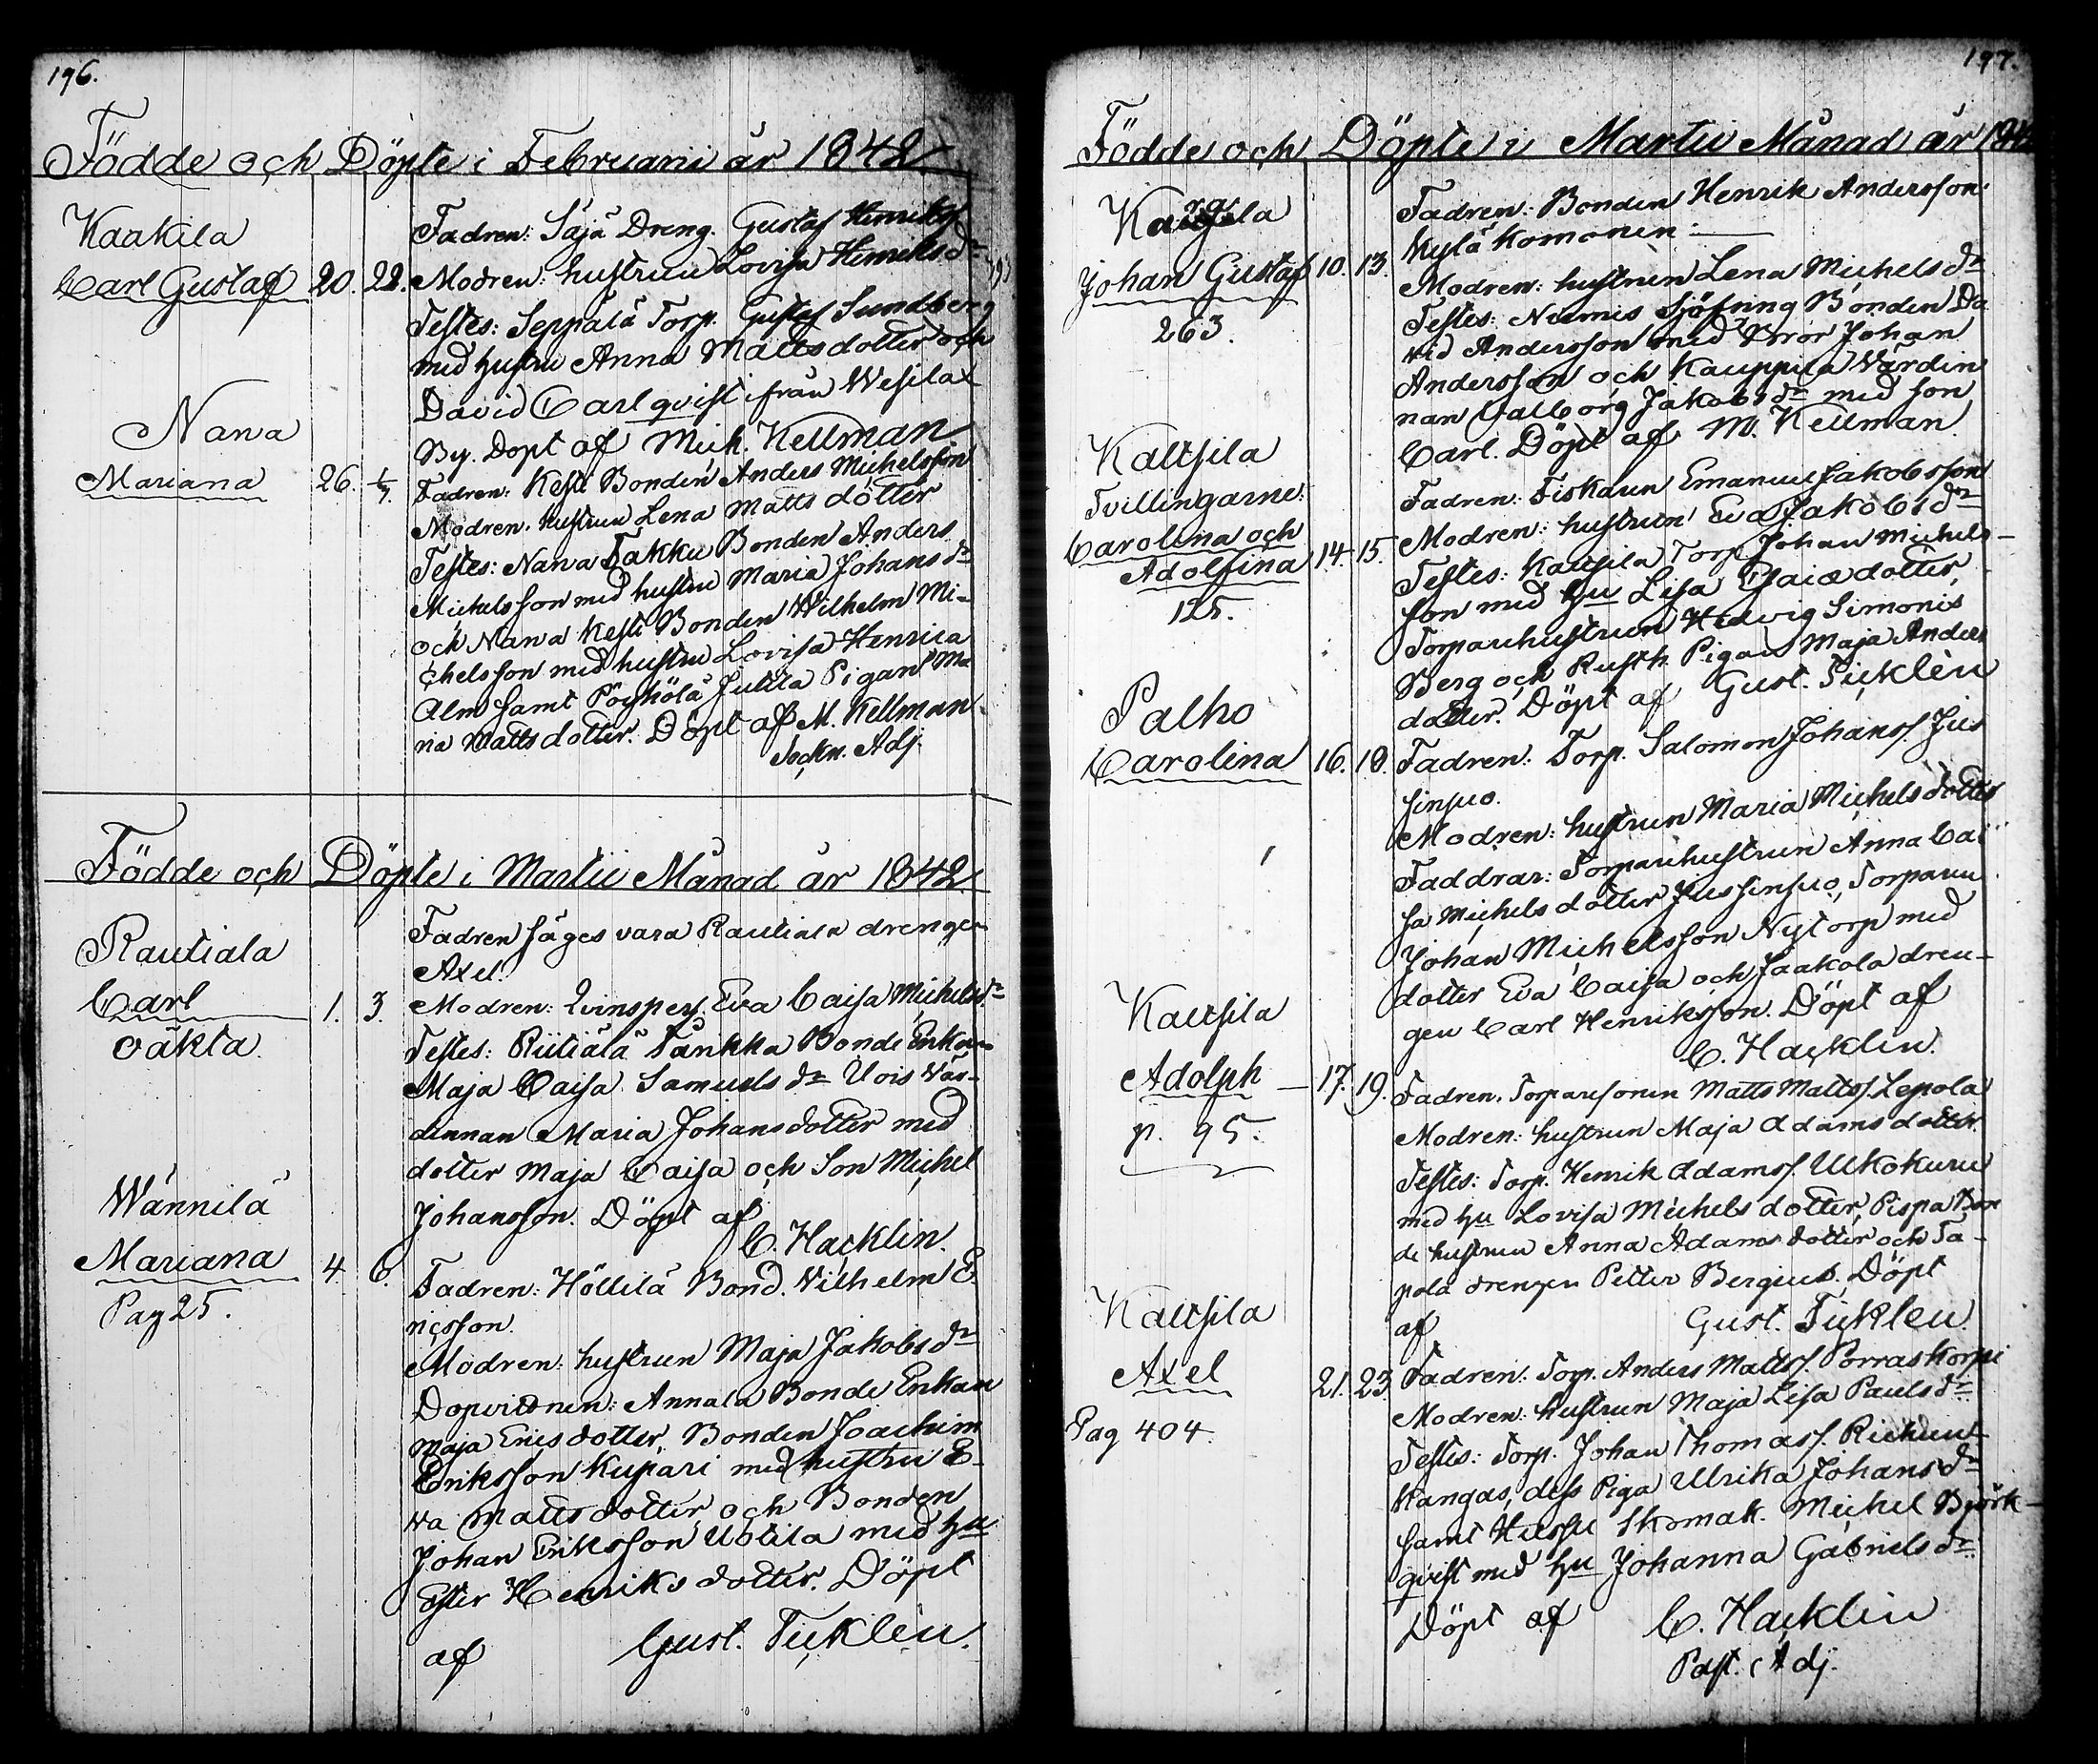 196.
Födde och Döpte i Februarii år 1842.
Kaakila
Carl Gustaf 20. 22.
Fadren: Säjä Dreng. Gustaf Henrikss.
Modren: hustrun Lovisa Henriksdr
Testes: Seppälä Torp. Gustaf Sundberg
med hustru Anna Mattsdotter och
David Carlqvist ifrån Wesilax
By. Döpt af Mich. Kellman
Nana
Mariana 26. 1/3.
Fadren: Kesti Bonden Anders Michelsson
Modren: hustrun Lena Mattsdotter
Testes: Nana Takku Bonden Anders
Michelsson med hustru Maria Johansdr
och Nana Kesti Bonden Wilhelm Mi-
chelsson med hustru Lovisa Henrica
Alm samt Pöyhölä Jutila Pigan Ma
ria Mattsdotter. Döpt af M. Kellman.
Sockn. Adj.
Födde och Döpte i Martii Månad år 1842.
Rautiala
Carl 1. 3.
oäkta.
Fadren säges vara Rautiala drengen
Axel.
Modren: Qvinspers. Eva Caisa Michelsdr
Testes: Riitiälä Tanikka Bonde Enkan
Maja Caisa Samuelsdr Uois Vär-
dinnan Maria Johansdotter med
dotter Maja Caisa och Son Michel
Johansson. Döpt af
C. Hacklin.
Wännilä
Mariana 4. 6.
Pag 25.
Fadren: Höllilä Bond. Wilhelm E
ricsson.
Modren: hustrun Maja Jakobsdr
Dopvittnen: Annala Bonde Enkan
Maja Ericsdotter, Bonden Joachim
Eriksson Kupari med hustru E-
va Mattsdotter och Bonden
Johan Eriksson Uotila med hu
Ester Henriksdotter. Döpt
af Gust. Ticklén.
197.
Födde och Döpte i Martii Månad år 1842
Johan Gustaf 10. 13.
263.
Fadren: Bonden Henrik Andersson
Kylä Komonen:
Modren: hustrun Lena Michelsdr
Testes: Niemis Sjöfring Bonden Da
vid Andersson med Bror Johan
Andersson och Kauppila Värdin
nan Valborg Jakobsdr med son
Carl. Döpt af M. Kellman.
Kaltsila
Tvillingarne:
Carolina och
Adolfina 14. 15.
125.
Fadren: Fiskaren Emanuel Jakobsson
Modren: hustrun Eva Jakobsdr
Testes: Kaltsila Torp. Johan Michels-
son med hu Lisa Esaiædotter,
Torparehustrun Hedvig Simonis
Berg och Rusth. Pigan Maja Anders
dotter. Döpt af Gust. Ticklén
Palho
Carolina 16. 18.
Fadren: Torp. Salomon Johanss. Jus
sinsuo.
Modren: hustrun Maria Michelsdotter
Faddrar: Torparehustrun Anna Cai
sa Michelsdotter Jussinsuo, Torparen
Johan Michelsson Nytorp med
dotter Eva Caisa och Jaakola dren-
gen Carl Henriksson. Döpt af
C. Hacklin.
Kaltsila
Adolph 17. 19.
p. 95.
Fadren: Torparesonen Matts Mattss. Lepola
Modren: hustrun Maja Adamsdotter.
Testes: Torp. Henrik Adamss. Ukokuru
med hu Lovisa Michelsdotter, Pispa Bon
de hustrun Anna Adamsdotter och Ta-
pola drengen Petter Bergius. Döpt
af Gust. Ticklen
Kaltsila
Axel 21. 23.
Pag 404.
Fadren: Torp. Anders Mattss. Porraskorpi
Modren: hustrun Maja Lisa Paulsdr
Testes: Torp. Johan Thomass.
kangas, dess Piga Ulrika Johansdr
samt Skomak. Michel Björk-
qvist med hu Johanna Gabrielsdr
Döpt af C. Hacklin
Past. Adj.